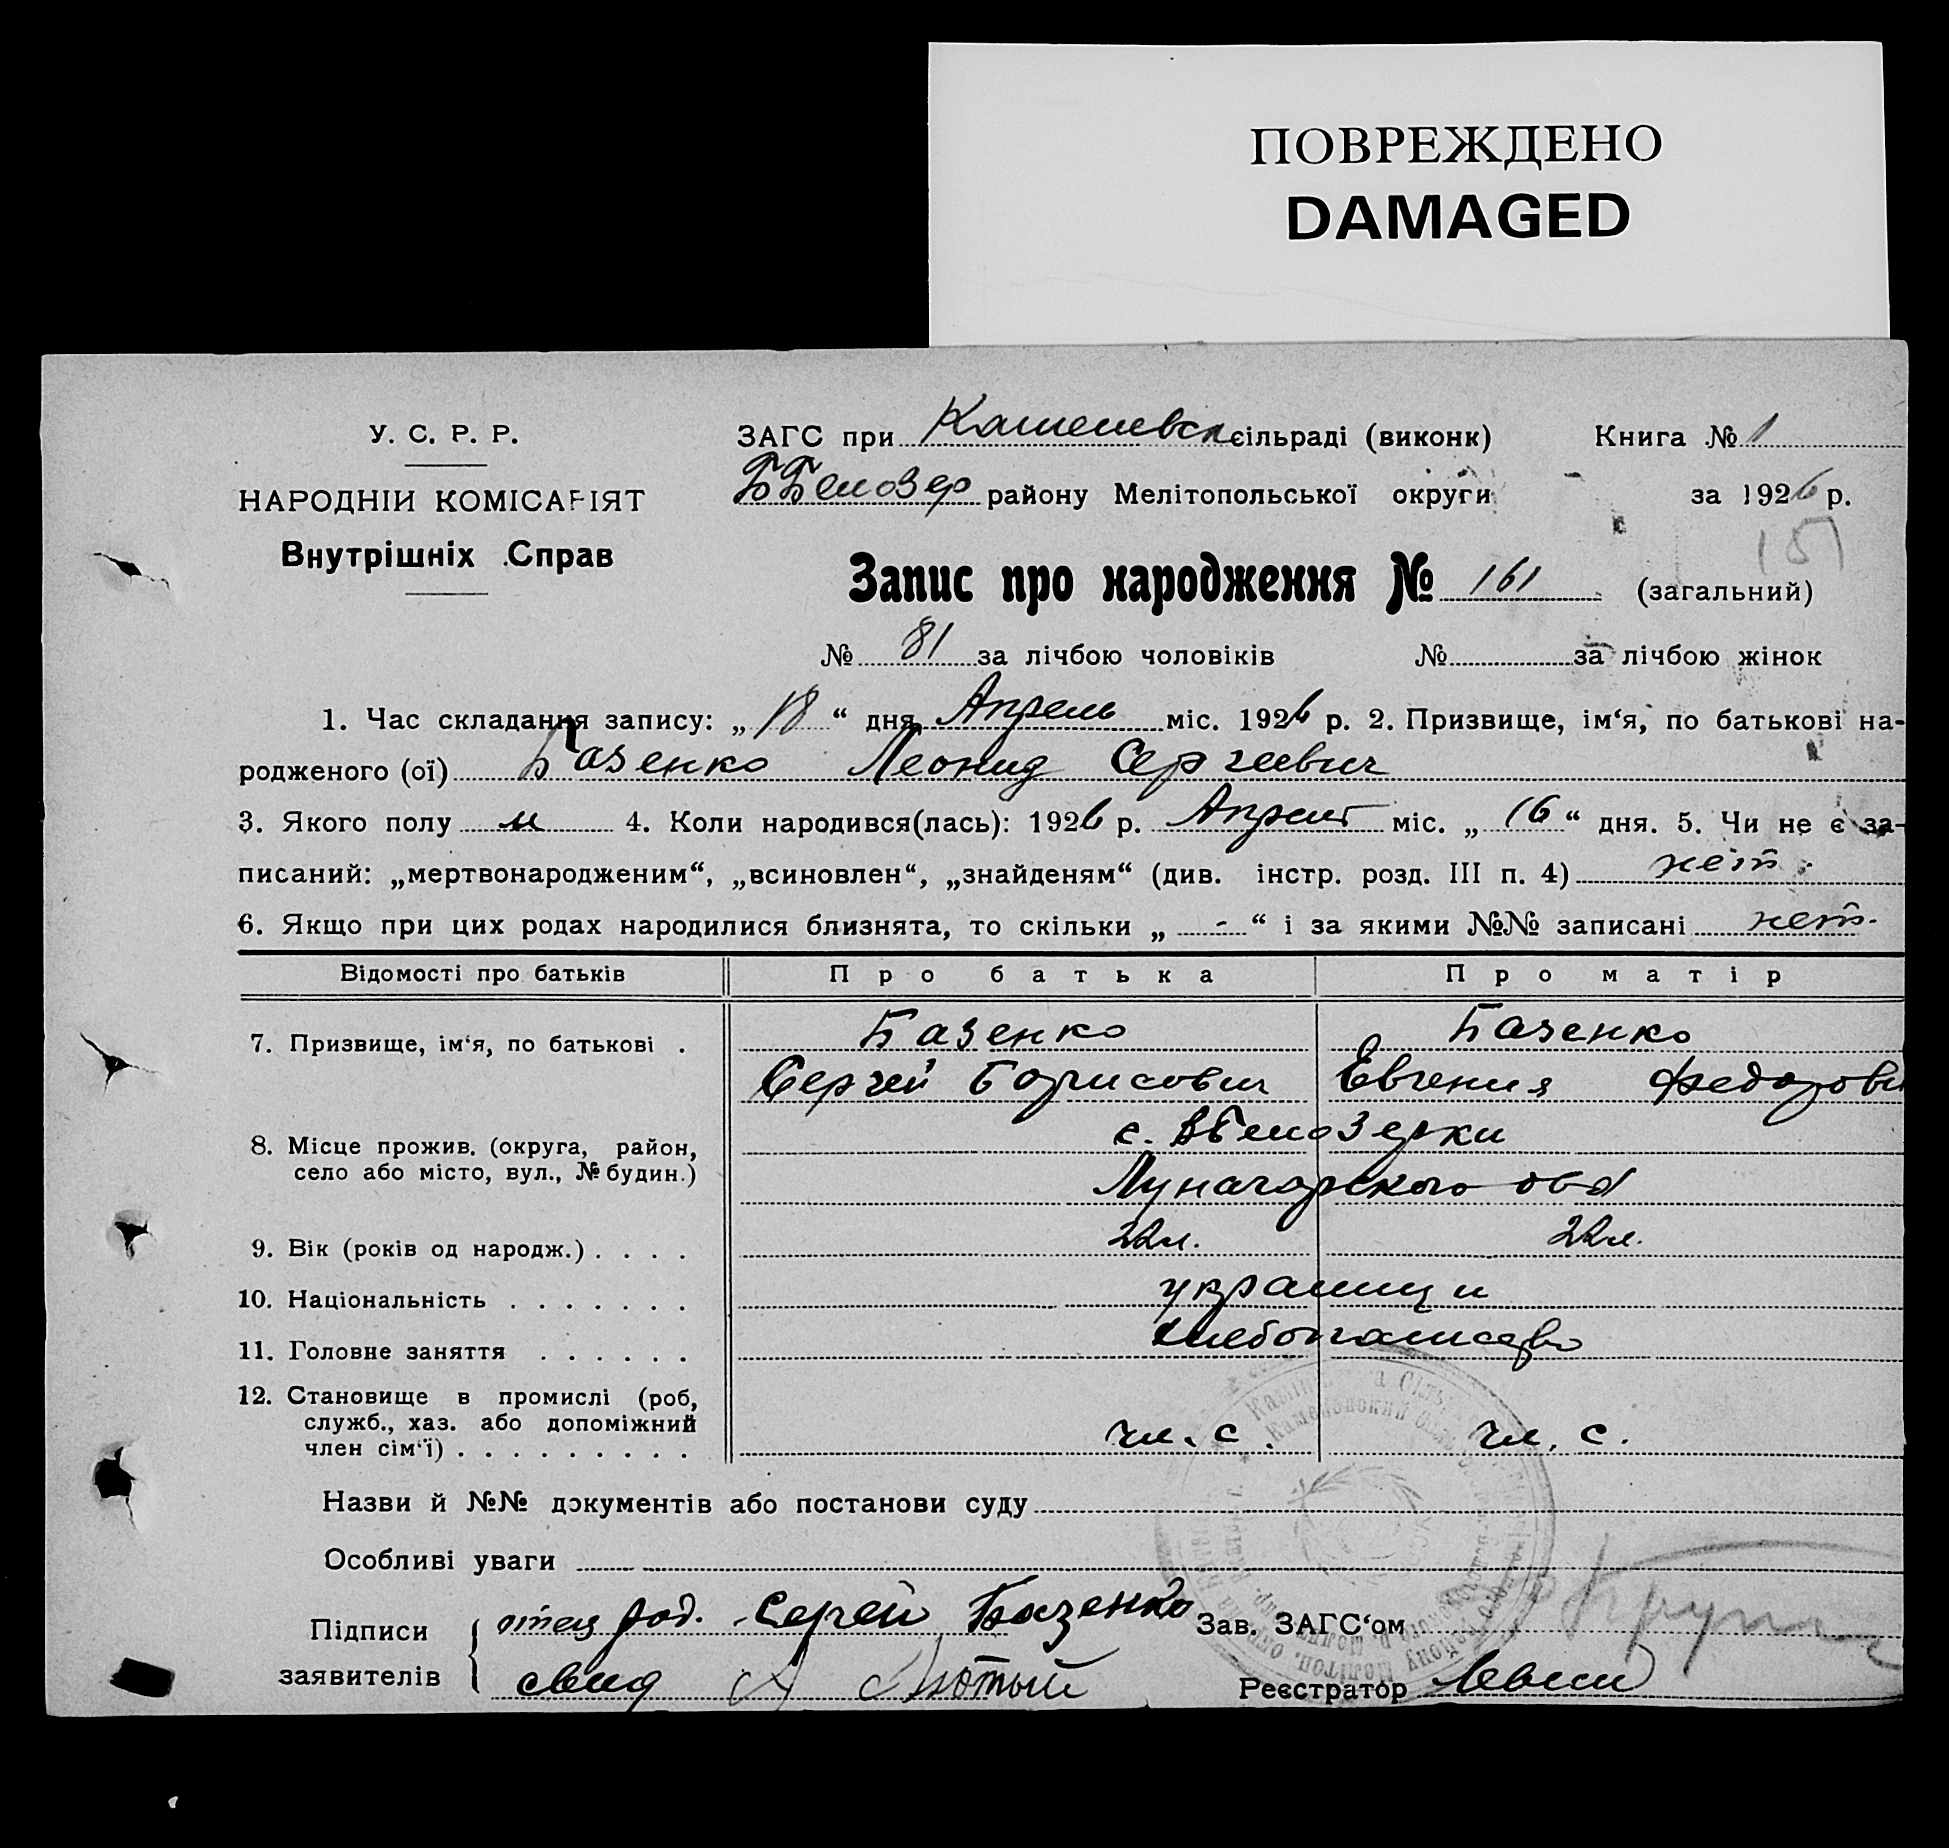 ПОВРЕЖДЕНО
DAMAGED
У. С. Р. Р. ЗАГС при сільраді (виконк) Книга № 1
НАРОДНІЙ КОМІСАРІЯТ ББелозер району Мелітопольської округи за 1926 р.
151
Внутрішніх Справ
Запис про народження № 161 (загальний)
№ 81 за лічбою чоловіків № за лічбою жінок
1. Час складання запису: „ 18 “ дня Апрель міс. 1926 р. 2. Призвище, ім‘я, по батькові на-
родженого (ої) Базенко Леонид Сергеевич
3. Якого полу м 4. Коли народився(лась): 1926 р. Апреля міс. „ 16 “ дня. 5. Чи не є за-
писаний: „мертвонародженим“, „всиновлен“, „знайденям“ (див. інстр. розд. III п. 4) нет
6. Якщо при цих родах народилися близнята, то скільки „ - “ і за якими №№ записані нет
Відомості про батьків Про батька Про матір
7. Призвище, ім‘я, по батькові . Базенко Базенко
Сергей Борисович Евгения Федоровн
8. Місце прожив. (округа, район, с. ББелозерки
село або місто, вул., № будин.) Луначарского
9. Вік (років од народж.) . . . . 22 л. 22 л.
10. Національність . . . . . . . украинци
11. Головне заняття . . . . . . хлебопашество
12. Становище в промислі (роб,
служб., хаз. або допоміжний
член сім‘ї) . . . . . . . . . чл. с. чл. с.
Назви й №№ документів або постанови суду
Особливі уваги
Підписи отец род. Сергей Базенко Зав. ЗАГС‘ом
заявителів свид А Лютый Реєстратор